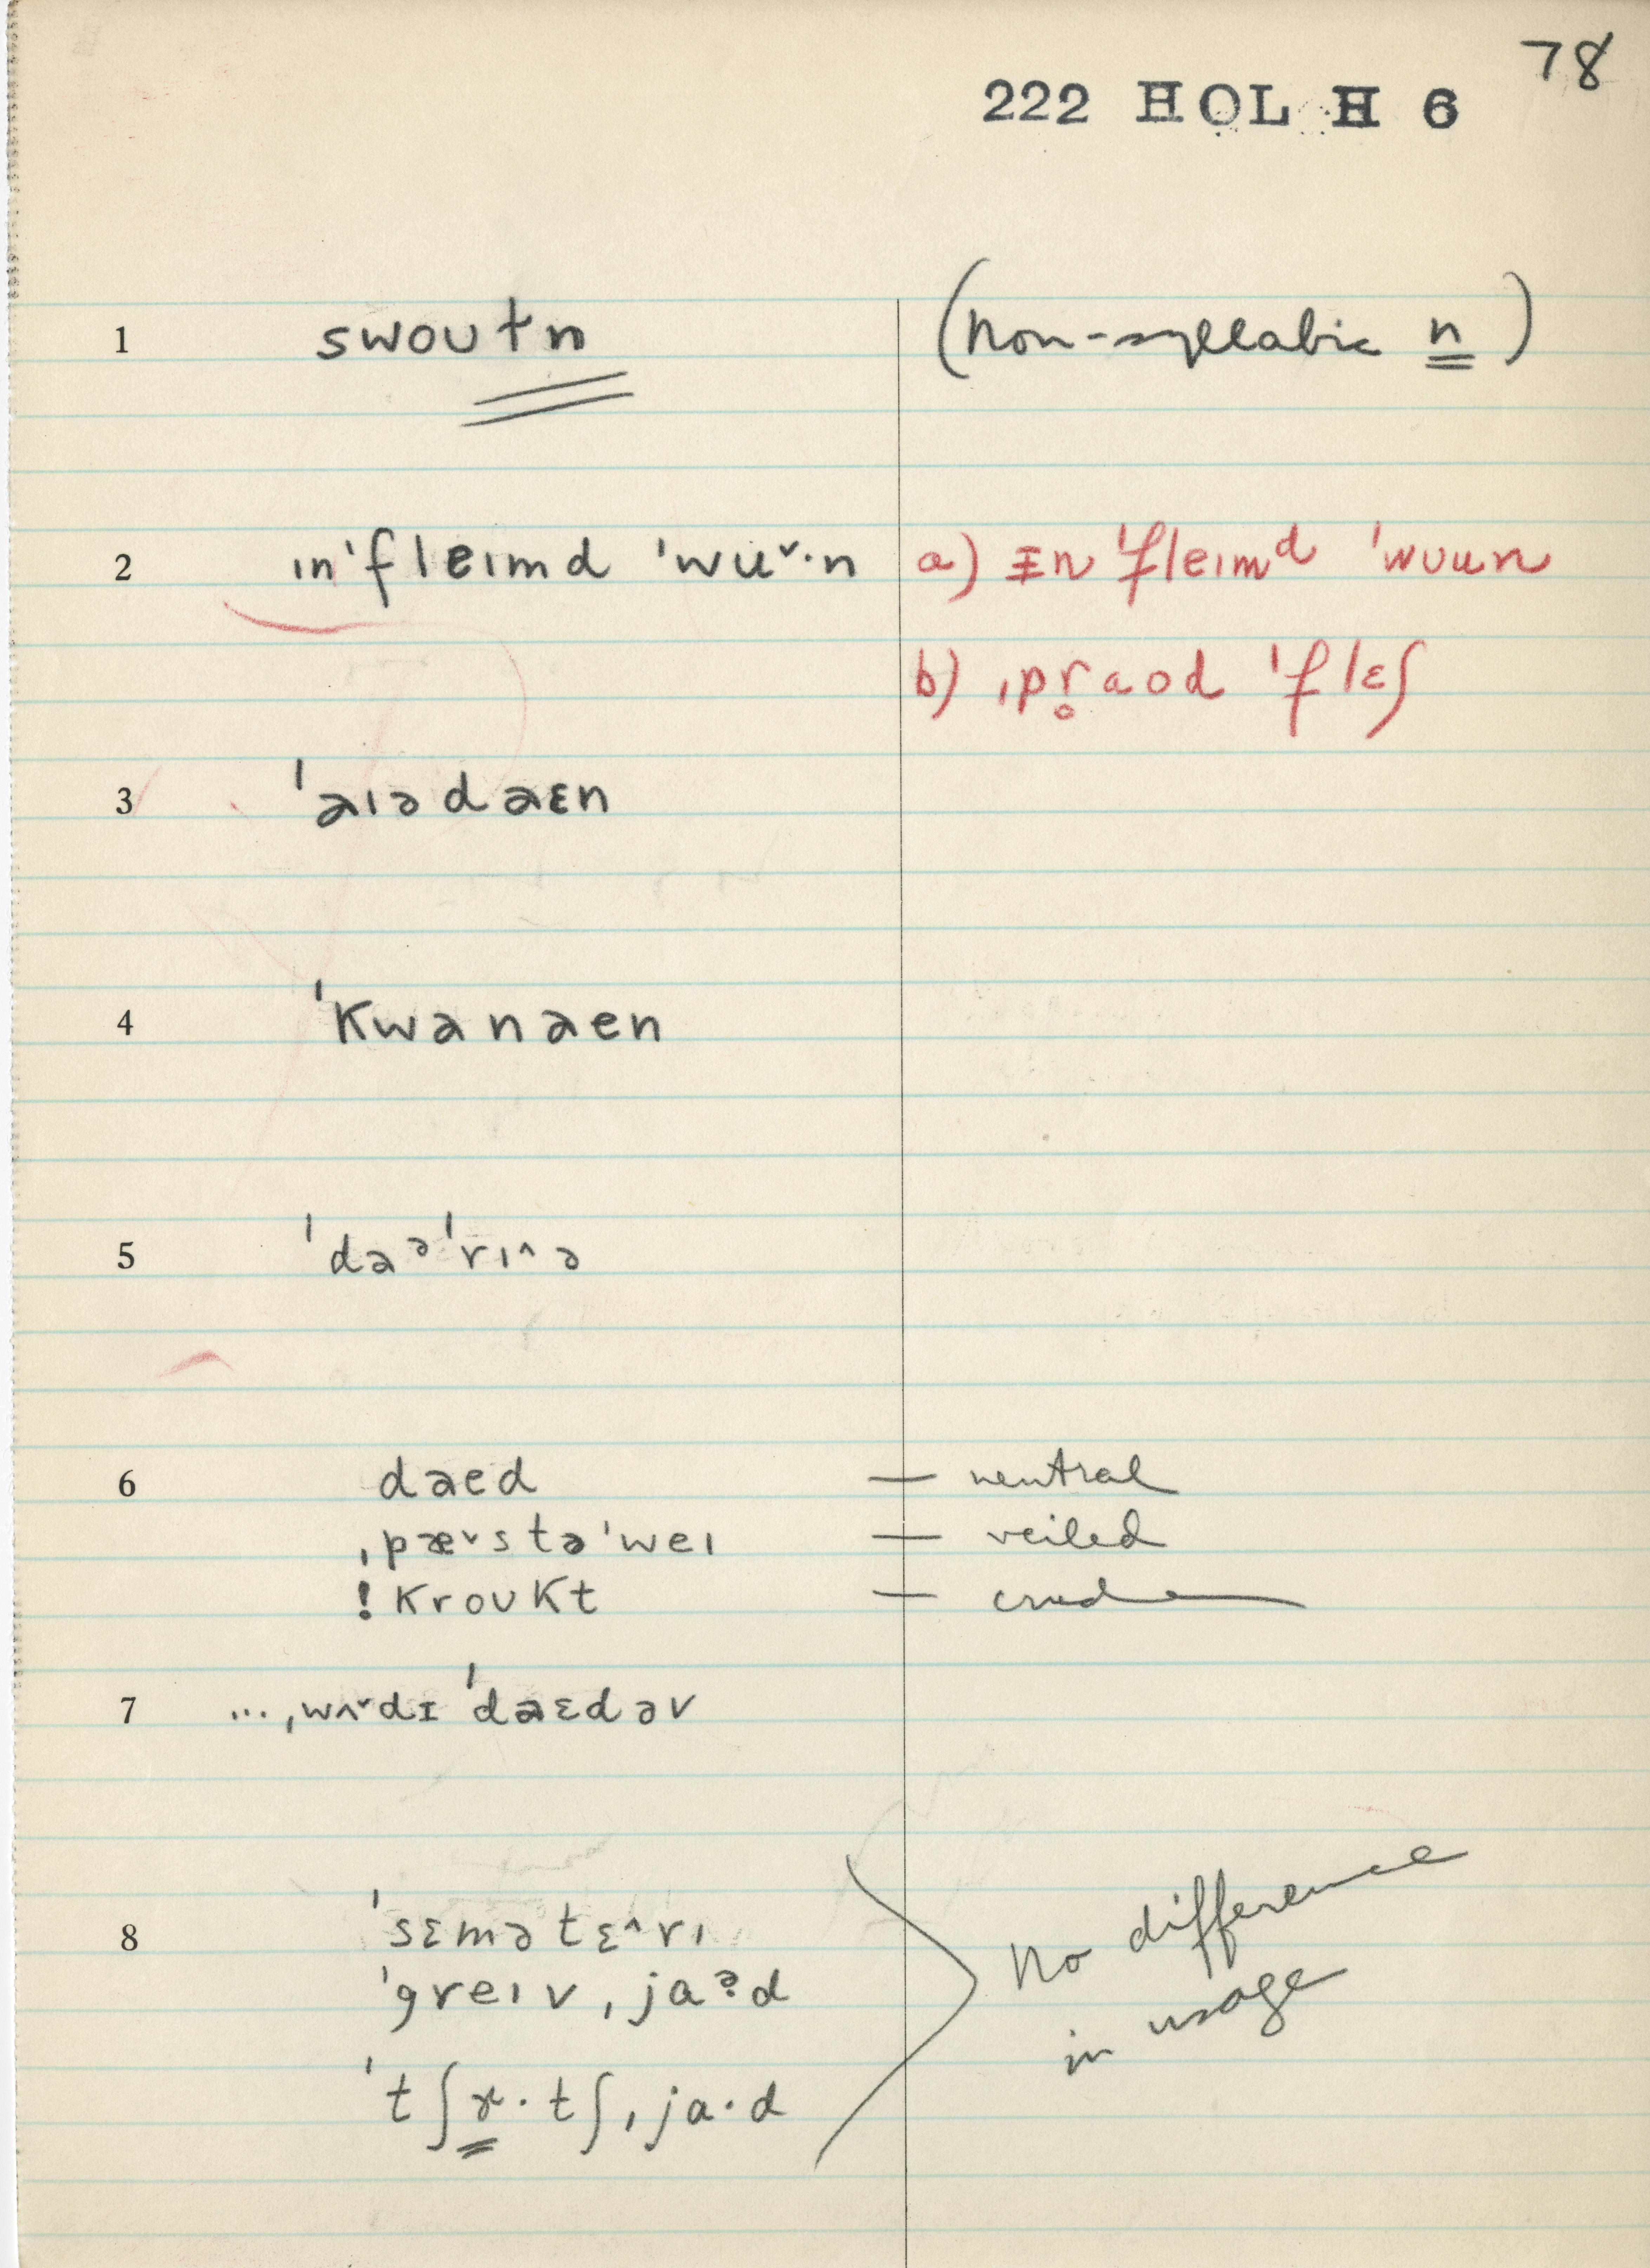 78
222 HOL H 6
1 swoutn (non-syllabic n)
2 ɪn'fleɪmd 'wuˇ·n a) ɪn'fleɪmᵈ 'wʊun
b) ˌpr̥aod 'flɛʃ
3 'aɪədaɛn
4 'kwanaen
5 'daᵊ'rɪ^ə
6 daed — neutral
ˌpæˇstə'weɪ — veiled
!kroukt — crude
7 ...ˌwʌˇdɪ 'daɛdəv
8 'sɛmətɛ^rɪ
'greɪvˌjaᵊd
'tʃɚ·tʃˌja·d
No difference
in usage